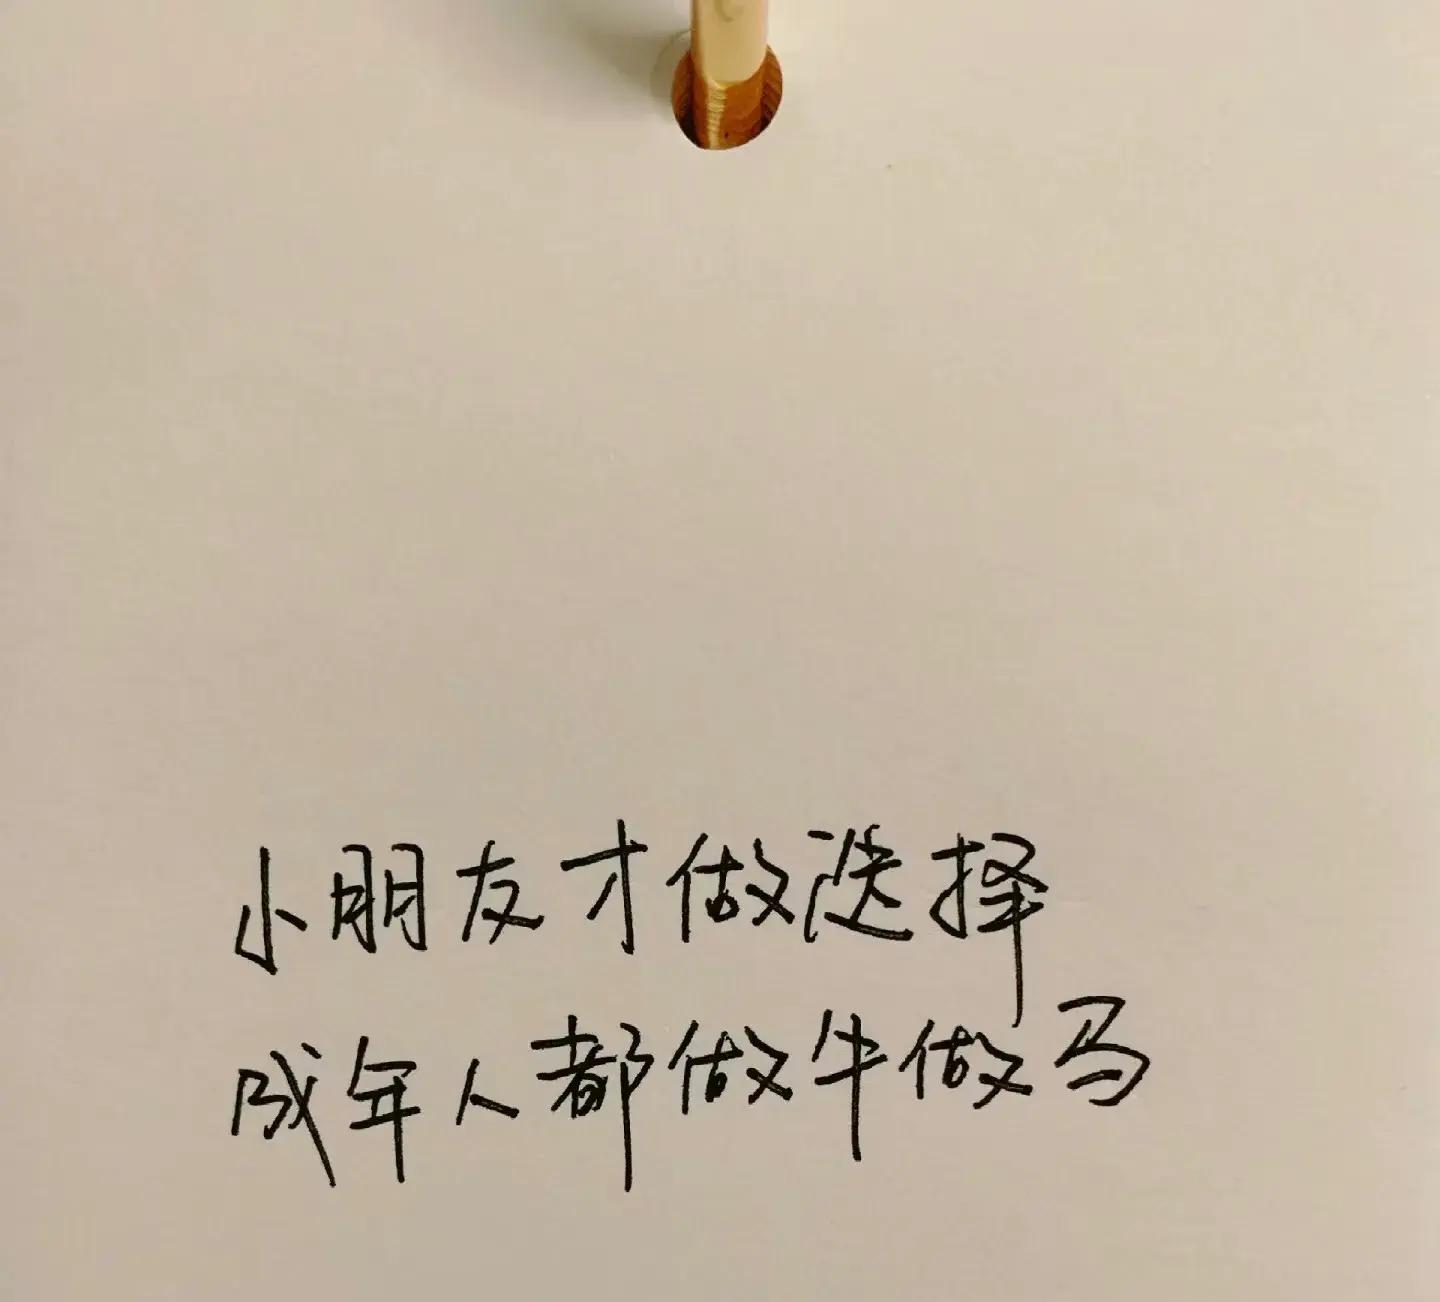 小朋友才做选择
成年人都做牛做马